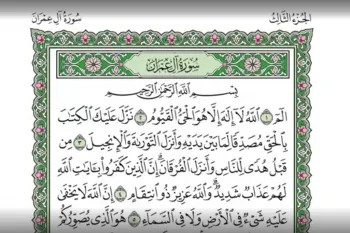 سُورَةُ آلِ عِمْرَان الجُزْءُ الثَّالِثُ
سُورَةُ آلِ عِمْرَان
بِسْمِ اللَّهِ الرَّحْمَٰنِ الرَّحِيمِ
الٓمٓ ١ اللَّهُ لَآ إِلَٰهَ إِلَّا هُوَ الْحَىُّ الْقَيُّومُ ٢ نَزَّلَ عَلَيْكَ الْكِتَٰبَ
بِالْحَقِّ مُصَدِّقًا لِّمَا بَيْنَ يَدَيْهِ وَأَنزَلَ التَّوْرَىٰةَ وَالْإِنجِيلَ ٣ مِن
قَبْلُ هُدًى لِّلنَّاسِ وَأَنزَلَ الْفُرْقَانَ إِنَّ الَّذِينَ كَفَرُوا بِـَٔايَٰتِ اللَّهِ
لَهُمْ عَذَابٌ شَدِيدٌ وَاللَّهُ عَزِيزٌ ذُو انتِقَامٍ ٤ إِنَّ اللَّهَ لَا يَخْفَىٰ
عَلَيْهِ شَىْءٌ فِى الْأَرْضِ وَلَا فِى السَّمَآءِ ٥ هُوَ الَّذِى يُصَوِّرُكُمْ